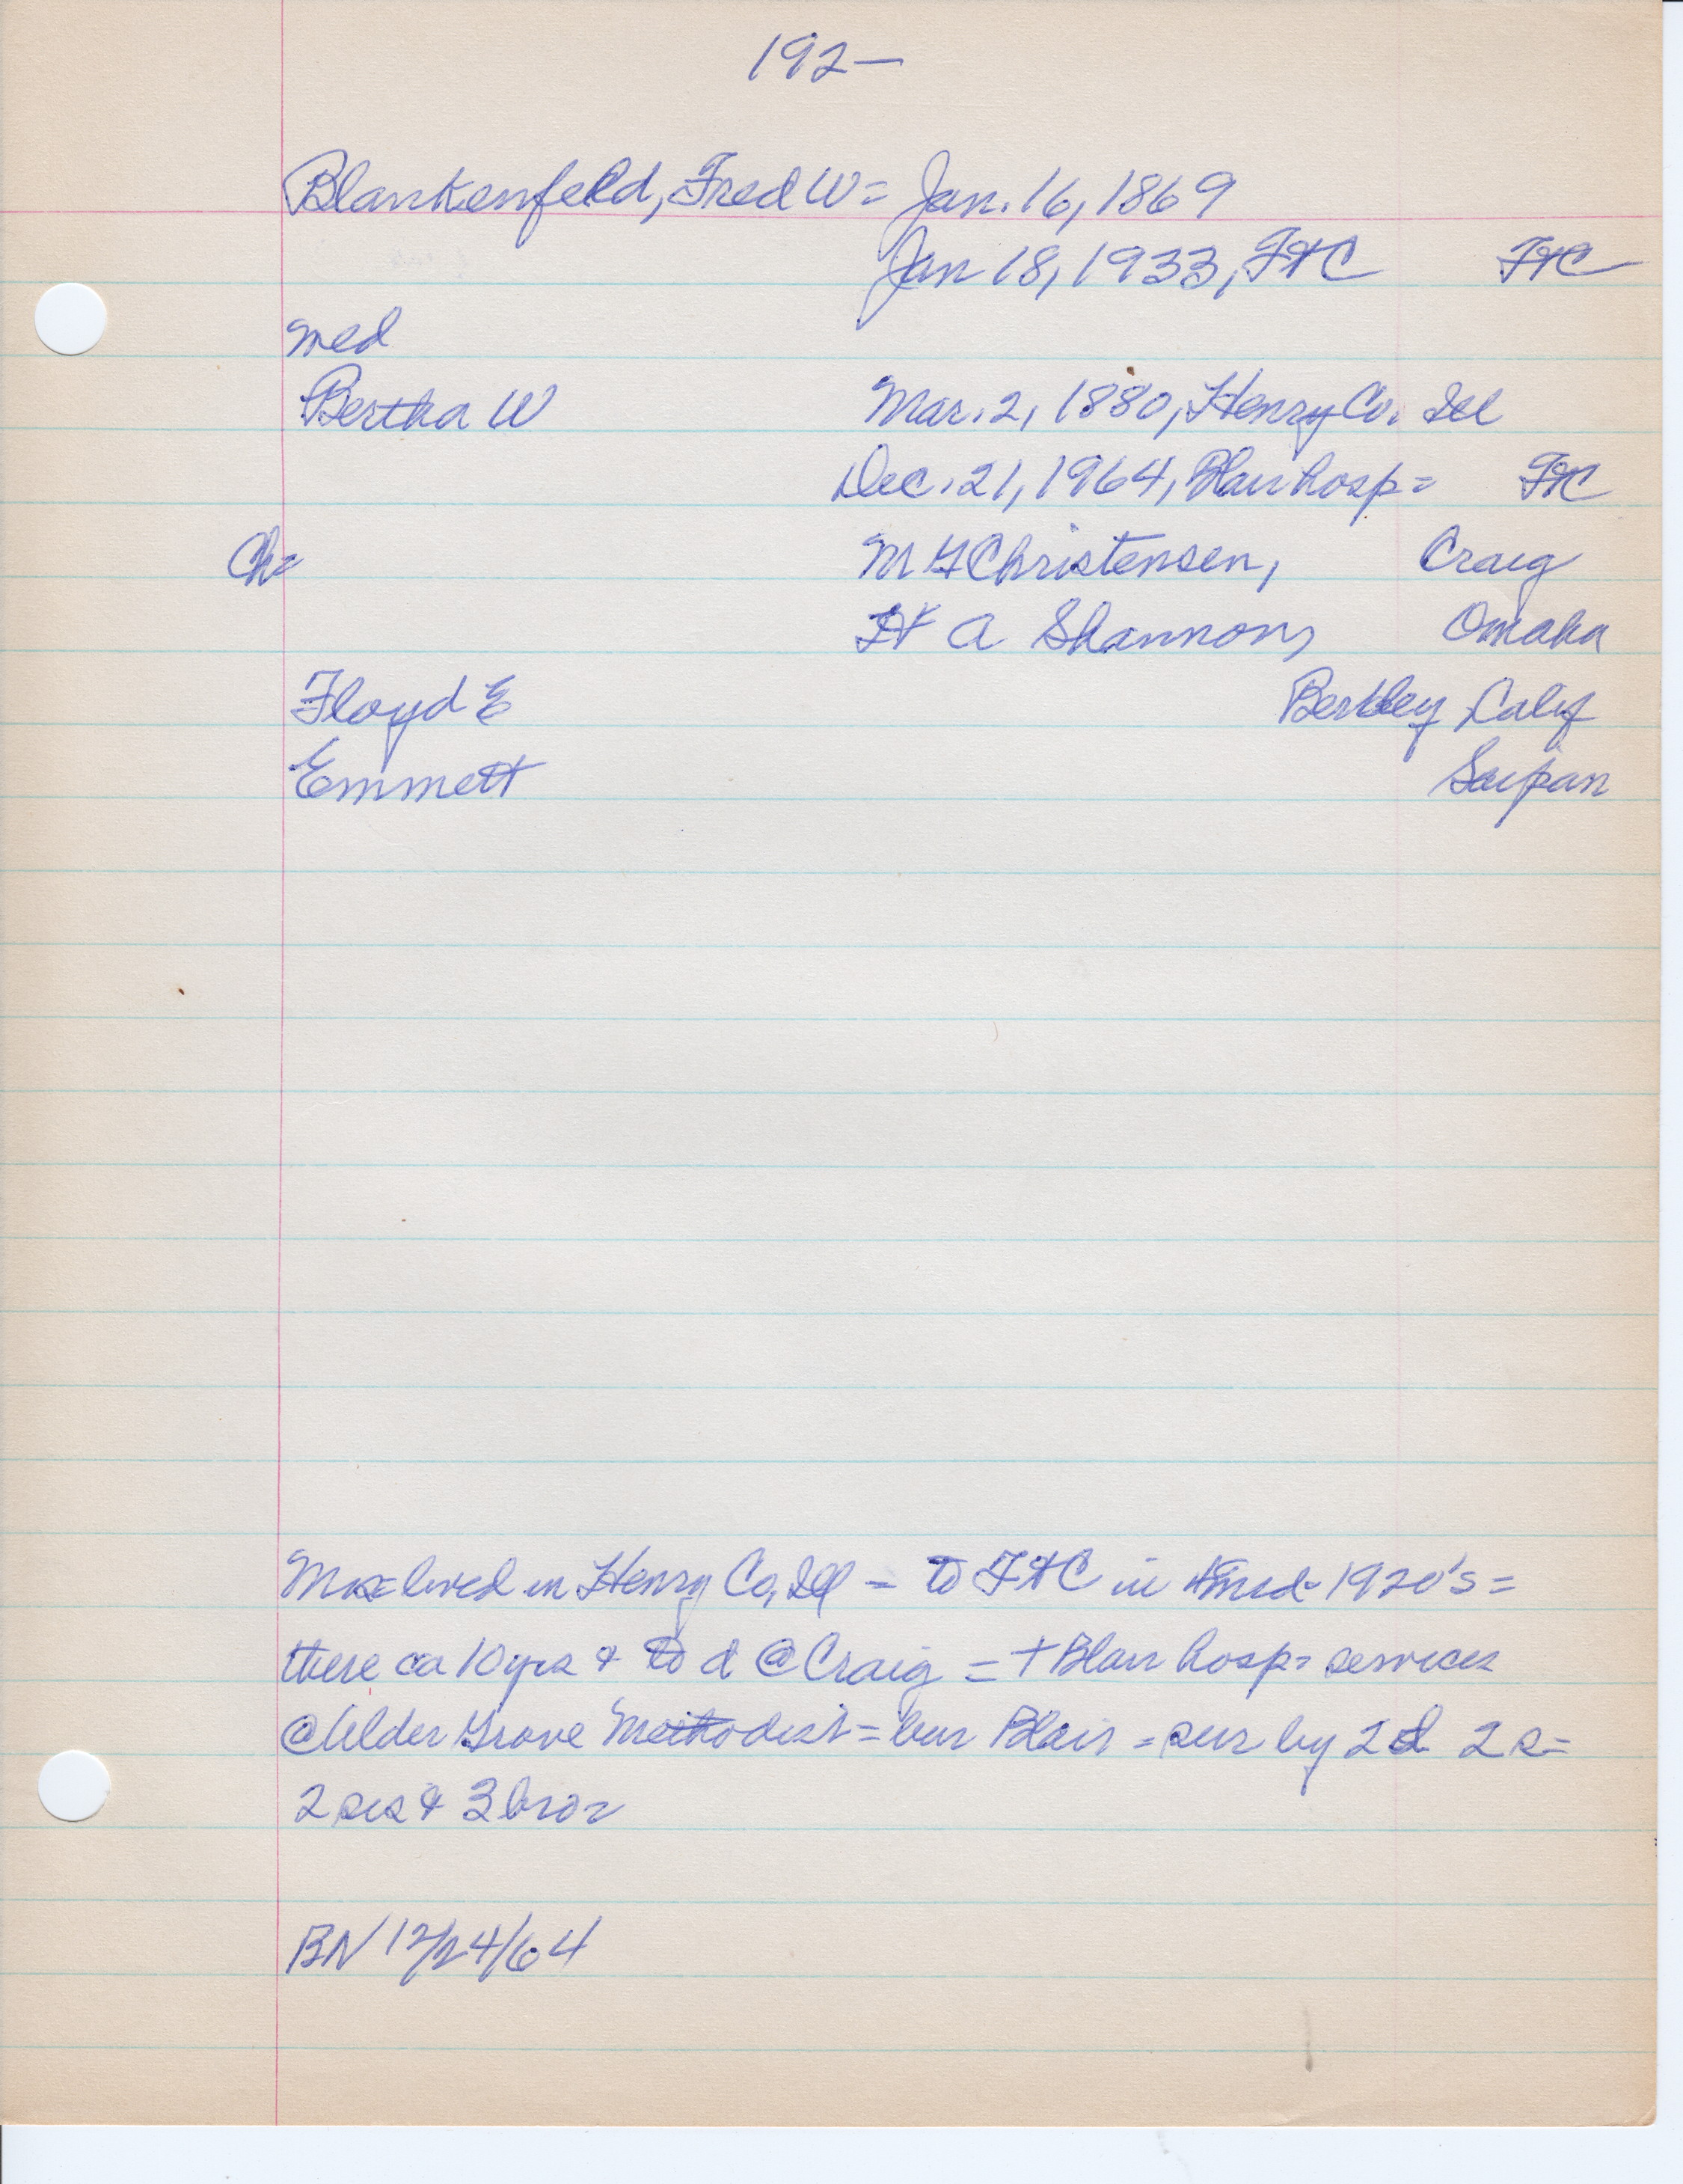 192—
Blankenfeld, Fred W= Jan. 16, 1869
Jan 18, 1933, FtC FtC
med
Bertha W Mar. 2, 1880, Henry Co. Ill
Dec. 21, 1964, Blair hosp= FtC
Ch= M G Christensen, Craig
H A Shannon, Omaha
Floyd E Berkley Calif
Emmett Saipan
Mrs= lived in Henry Co, Ill = to FtC in mid-1920's=
there ca 10 yrs & to d @ Craig = + Blair hosp= services
@ Alder Grove Methodist= bur Blair = sur by 2d 2s=
2 sis & 3 bro=
BN 12/24/64